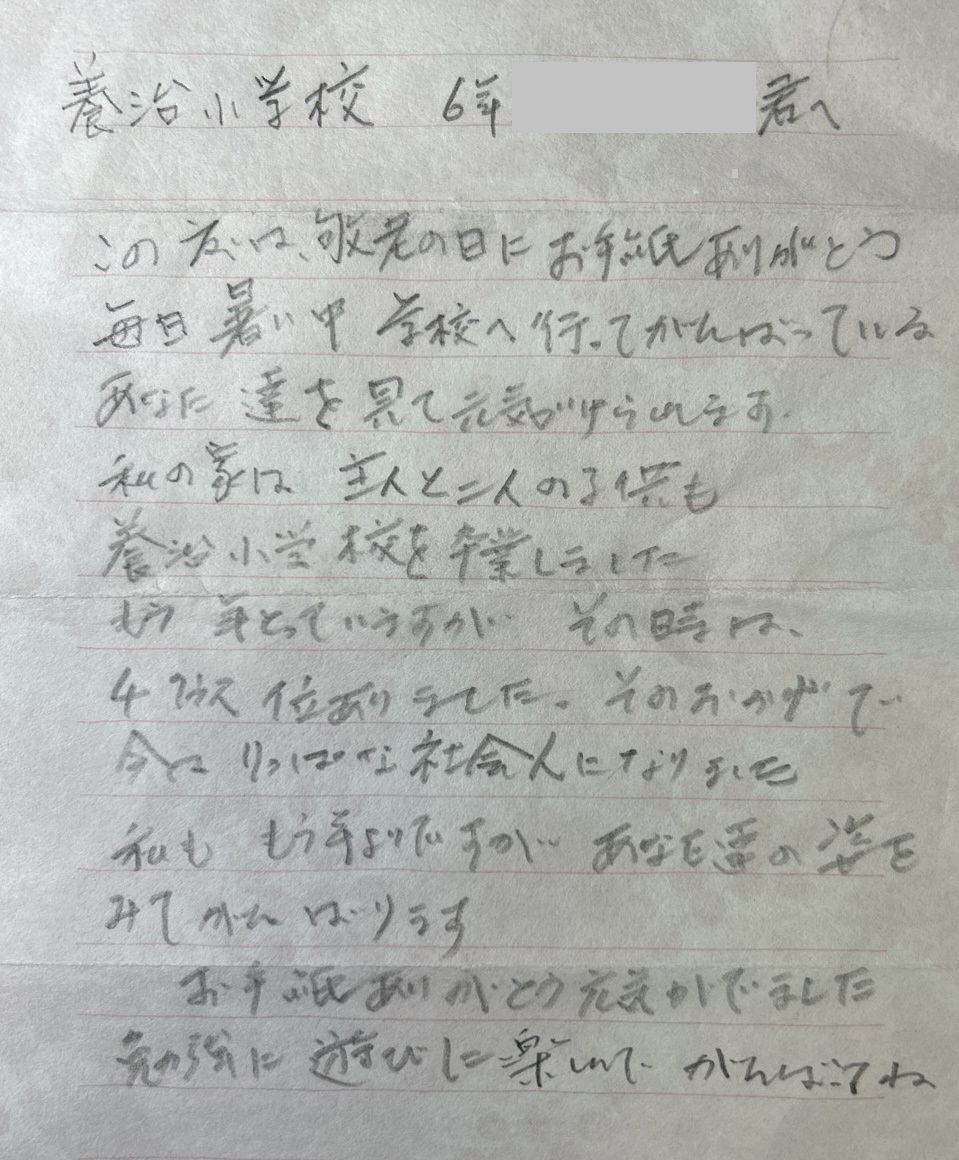 養治小学校 6年 君へ
この度は、敬老の日にお手紙ありがとう
毎日暑い中 学校へ行ってがんばっている
あなた達を見て元気づけられます。
私の家は 主人と二人の子供も
養治小学校を卒業しました
もう年とっていますが… その時は、
4クラス位ありました。そのおかげで
今はりっぱな社会人になりました
私も もう年よりですが… あなた達の姿を
みてがんばります
お手紙ありがとう元気がでました
勉強に遊びに楽しんで がんばってね